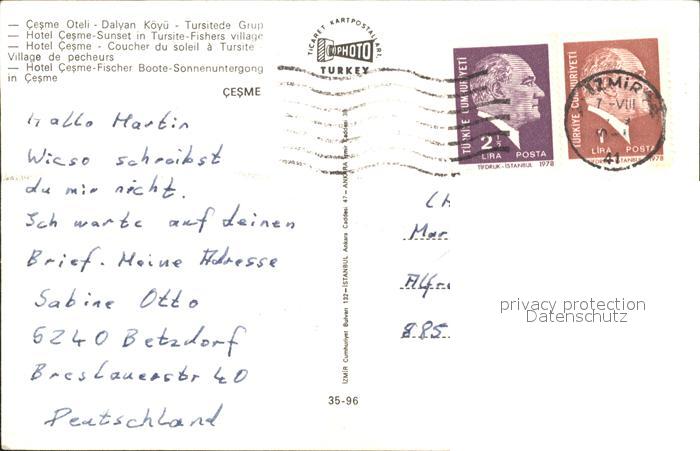 — Çeşme Oteli - Dalyan Köyü - Tursitede Grup
— Hotel Çeşme-Sunset in Tursite-Fishers village
— Hotel Çeşme - Coucher du soleil à Tursite -
Village de pecheurs
— Hotel Çeşme-Fischer Boote-Sonnenuntergong
in Çeşme
ÇEŞME
TICARET KARTPOSTALLARI
PHOTO
TURKEY
Hallo Martin
Wieso schreibst
du mir nicht.
Ich warte auf deinen
Brief. Meine Adresse
Sabine Otto
5240 Betzdorf
Breslauerstr 40
Deutschland
İZMİR Cumhuriyet Bulvarı 132-İSTANBUL Ankara Caddesi 47-ANKARA İzmir Caddesi
35-96
TÜRKİYE CUMHURİYETİ
2½
LİRA POSTA
TİFDRUK-İSTANBUL 1978
TÜRKİYE CUMHURİYETİ
LİRA POSTA
TİFDRUK-İSTANBUL 1978
İZMİR
7-VIII
Mar
Alfre
885
privacy protection
Datenschutz